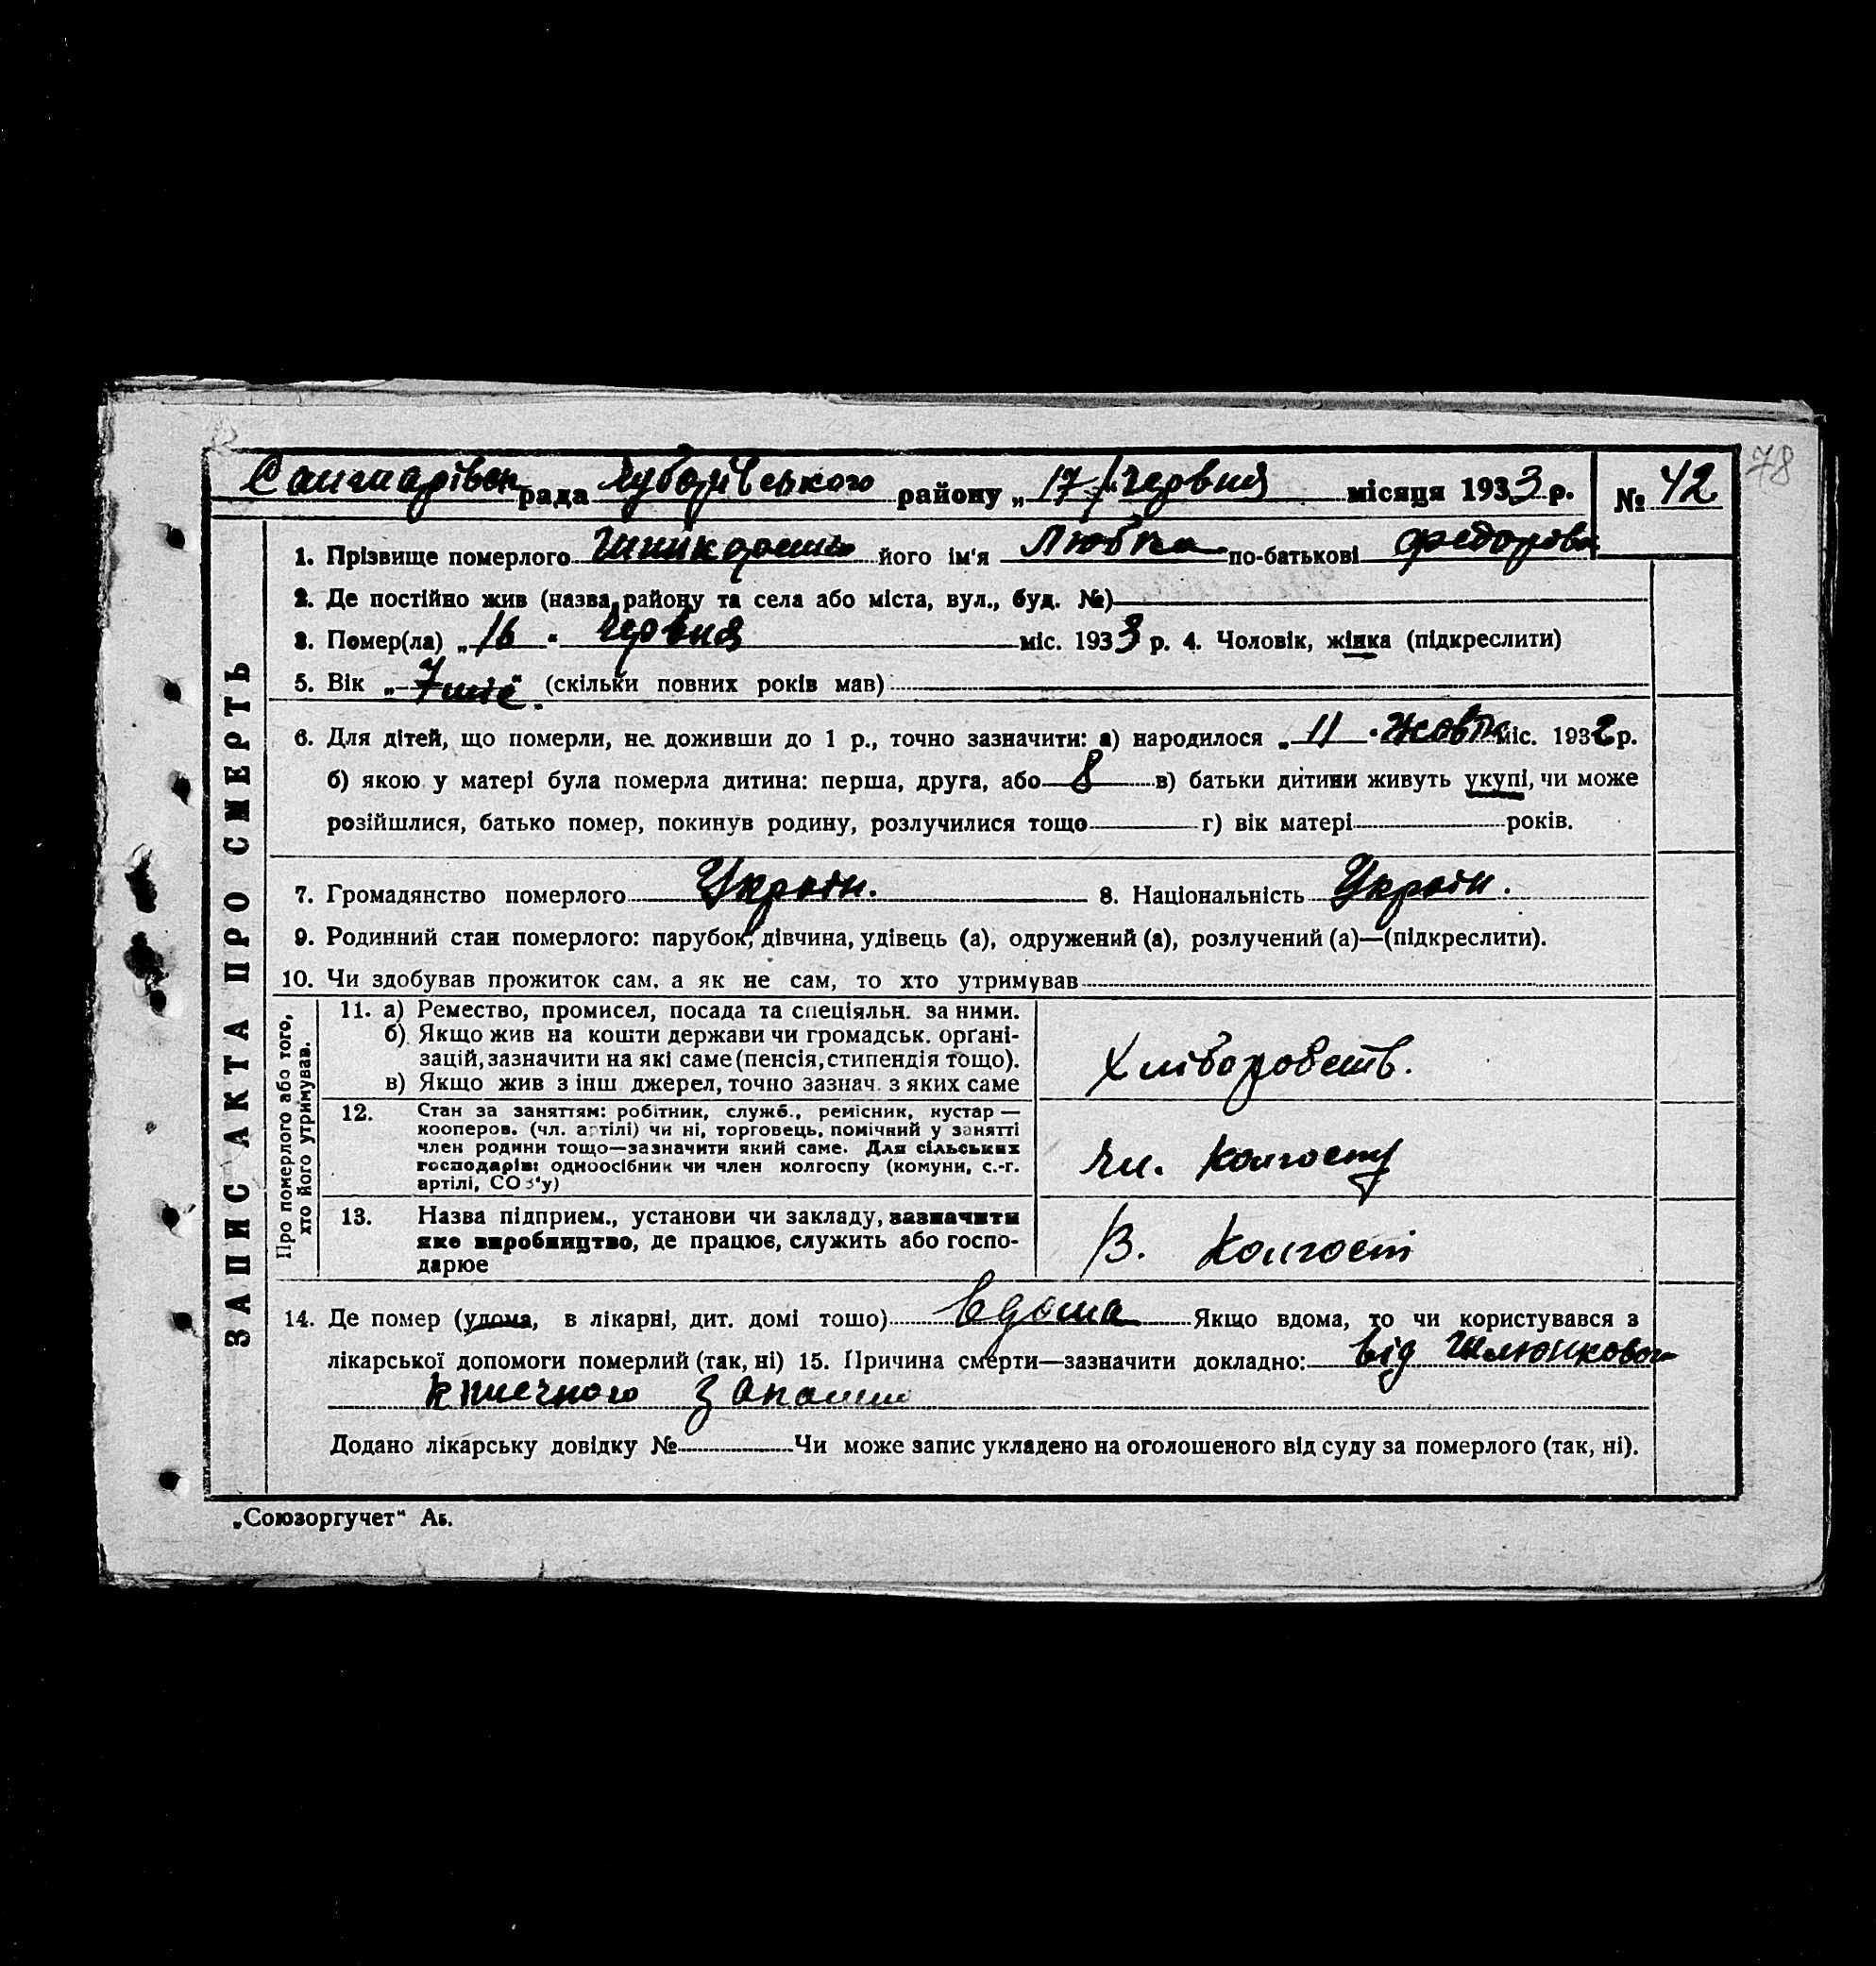 78
рада Чубарівського району „17" червня місяця 1933 р. № 42
ЗАПИС АКТА ПРО СМЕРТЬ
1. Прізвище померлого його ім'я Любка по-батькові Федорова
2. Де постійно жив (назва району та села або міста, вул., буд. №)
3. Помер(ла) „16" червня міс. 1933 р. 4. Чоловік, жінка (підкреслити)
5. Вік „7 міс." (скільки повних років мав)
6. Для дітей, що померли, не доживши до 1 р., точно зазначити: а) народилося „11" жовтн міс. 1932 р.
б) якою у матері була померла дитина: перша, друга, або 8 в) батьки дитини живуть укупі, чи може
розійшлися, батько помер, покинув родину, розлучилися тощо г) вік матері років.
7. Громадянство померлого Україн. 8. Національність Україн.
9. Родинний стан померлого: парубок, дівчина, удівець (а), одружений (а), розлучений (а)—(підкреслити).
10. Чи здобував прожиток сам, а як не сам, то хто утримував
Про померлого або того, хто його утримував.
11. а) Ремество, промисел, посада та спеціяльн. за ними.
б) Якщо жив на кошти держави чи громадськ. орґані-
зацій, зазначити на які саме (пенсія, стипендія тощо).
в) Якщо жив з інш джерел, точно зазнач. з яких саме
Хліборобств.
12. Стан за заняттям: робітник, служб., ремісник, кустар —
кооперов. (чл. артілі) чи ні, торговець, помічний у занятті
член родини тощо—зазначити який саме. Для сільських
господарів: одноосібник чи член колгоспу (комуни, с.-г.
артілі, СОЗ'у)
чл. колгоспу
13. Назва підприєм., установи чи закладу, зазначити
яке виробництво, де працює, служить або госпо-
дарює
В. колгоспі
14. Де помер (удома, в лікарні, дит. домі тошо) вдома Якщо вдома, то чи користувався з
лікарської допомоги померлий (так, ні) 15. Причина смерти—зазначити докладно: від шлюнково
кишечного запаленн
Додано лікарську довідку № Чи може запис укладено на оголошеного від суду за померлого (так, ні).
„Союзоргучет"